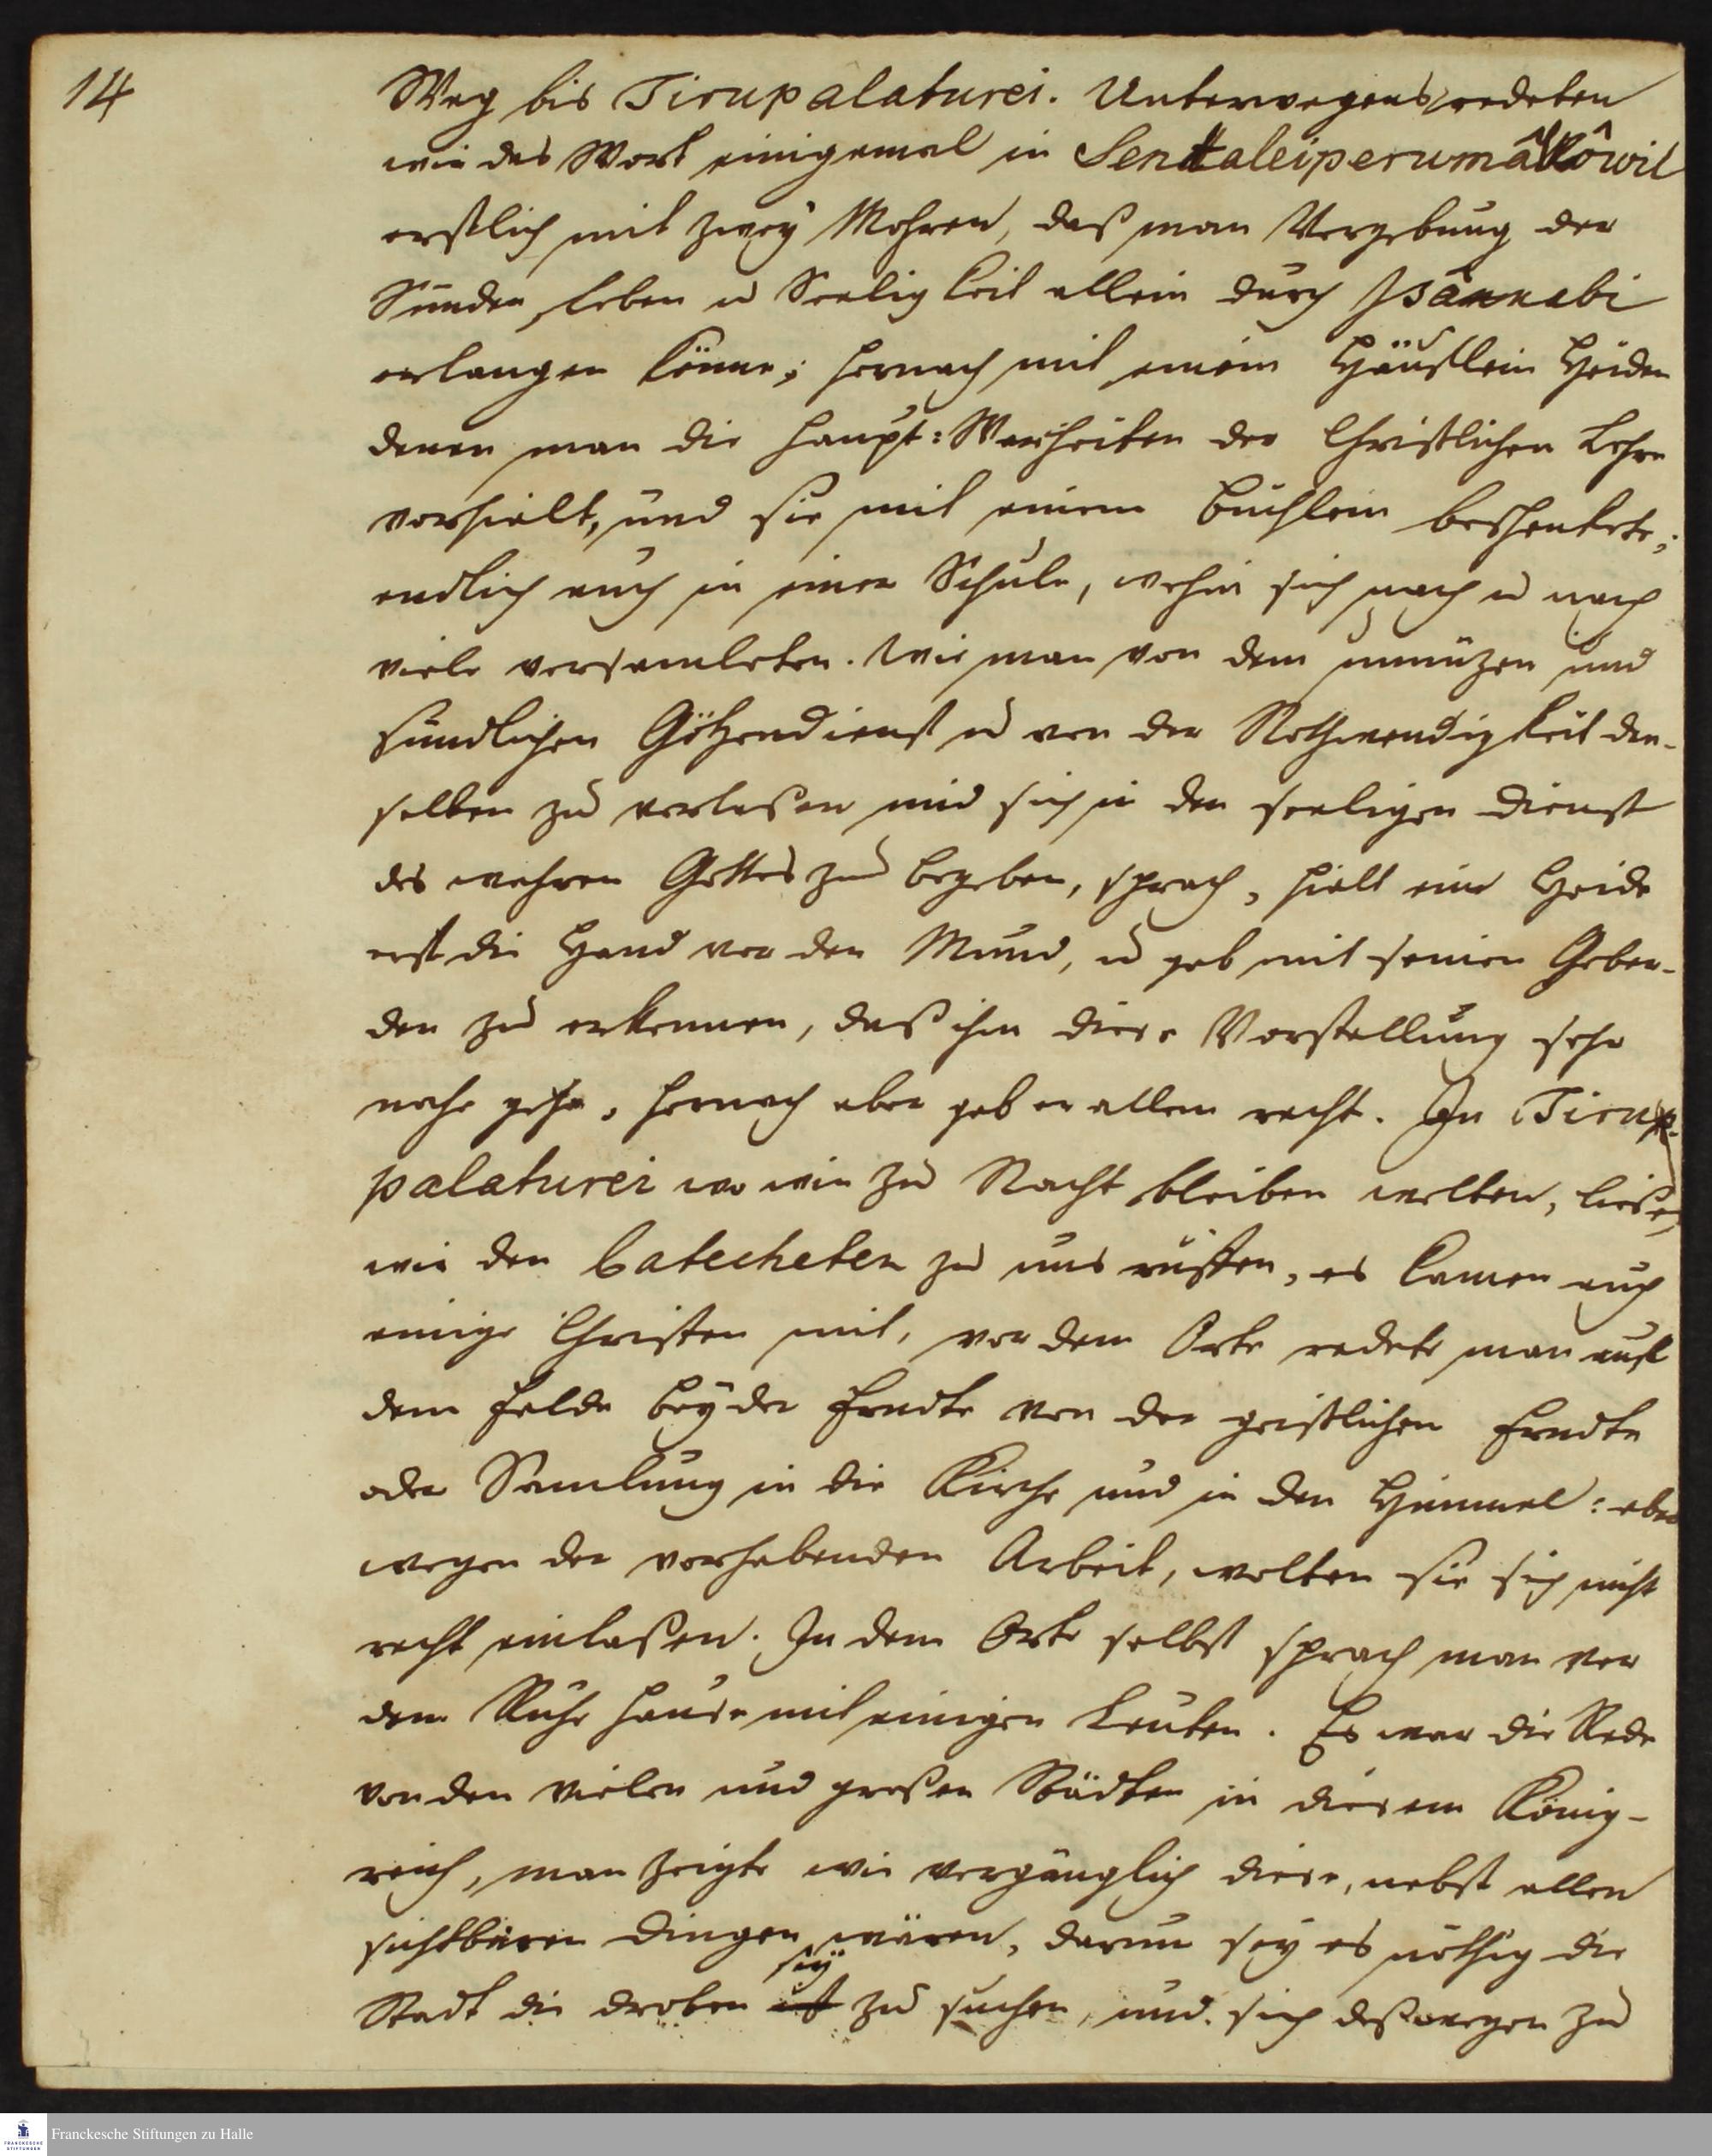 14
Weg bis Tirupalaturei. Unterwegens redeten
wir das Wort einigemal in Sentaleiperumâlkôwil
erstlich mit zwey Mohren, daß man Vergebung der
Sünden, Leben u Seeligkeit allein durch Isânnabi
erlangen könne; hernach mit einem Häuflein Heiden
denen man die Haupt-Warheiten der Christlichen Lehre
vorhielt, und sie mit einem Büchlein beschenkete;
endlich auch in einer Schule, wohin sich nach u nach
viele versamleten. Wie man von dem unnüzen und
sündlichen Götzendienst u von der Nothwendigkeit den-
selben zu verlaßen und sich in den seeligen Dienst
des wahren Gottes zu begeben, sprach, hielt ein Heide
erst die Hand vor den Mund, u gab mit seinen Geber-
den zu erkennen, daß ihm diese Vorstellung sehr
nahe gehe, hernach aber gab er allem recht. In Tirup-
palaturei wo wir zu Nacht bleiben wolten, ließen
wir den Catecheten zu uns ruffen, es kamen auch
einige Christen mit, vor dem Orte redete man auf
dem Felde bey der Erndte von der geistlichen Erndte
oder Samlung in die Kirche und in den Himmel: aber
wegen der vorhabenden Arbeit, wolten sie sich nicht
recht einlaßen. In dem Orte selbst sprach man vor
dem Ruhe Hause mit einigen Leuten. Es war die Rede
von den vielen und großen Städten in diesem König-
reich, man zeigte wie vergänglich diese, nebst allen
sichtbaren Dingen wären, darum sey es nöthig die
sey
Stadt die droben ist zu suchen, und sich deßwegen zu
Franckesche Stiftungen zu Halle